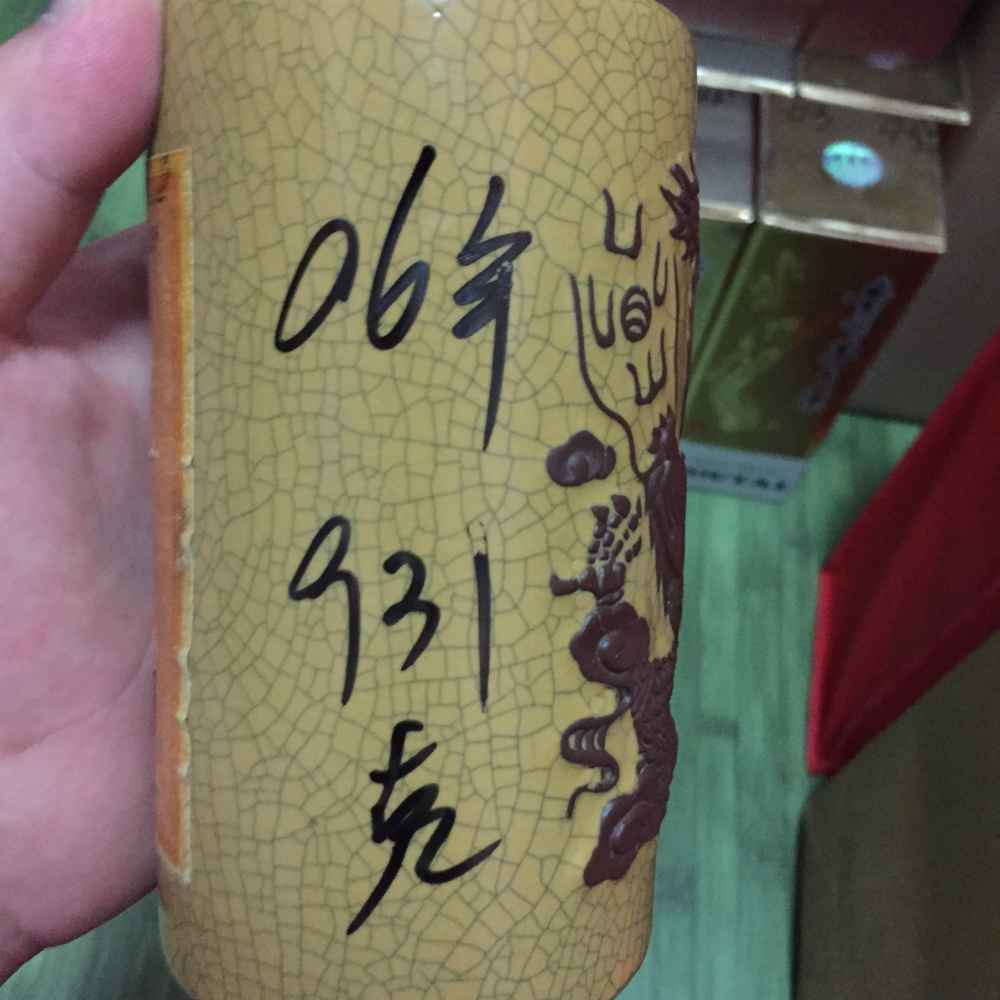 06年
931
克